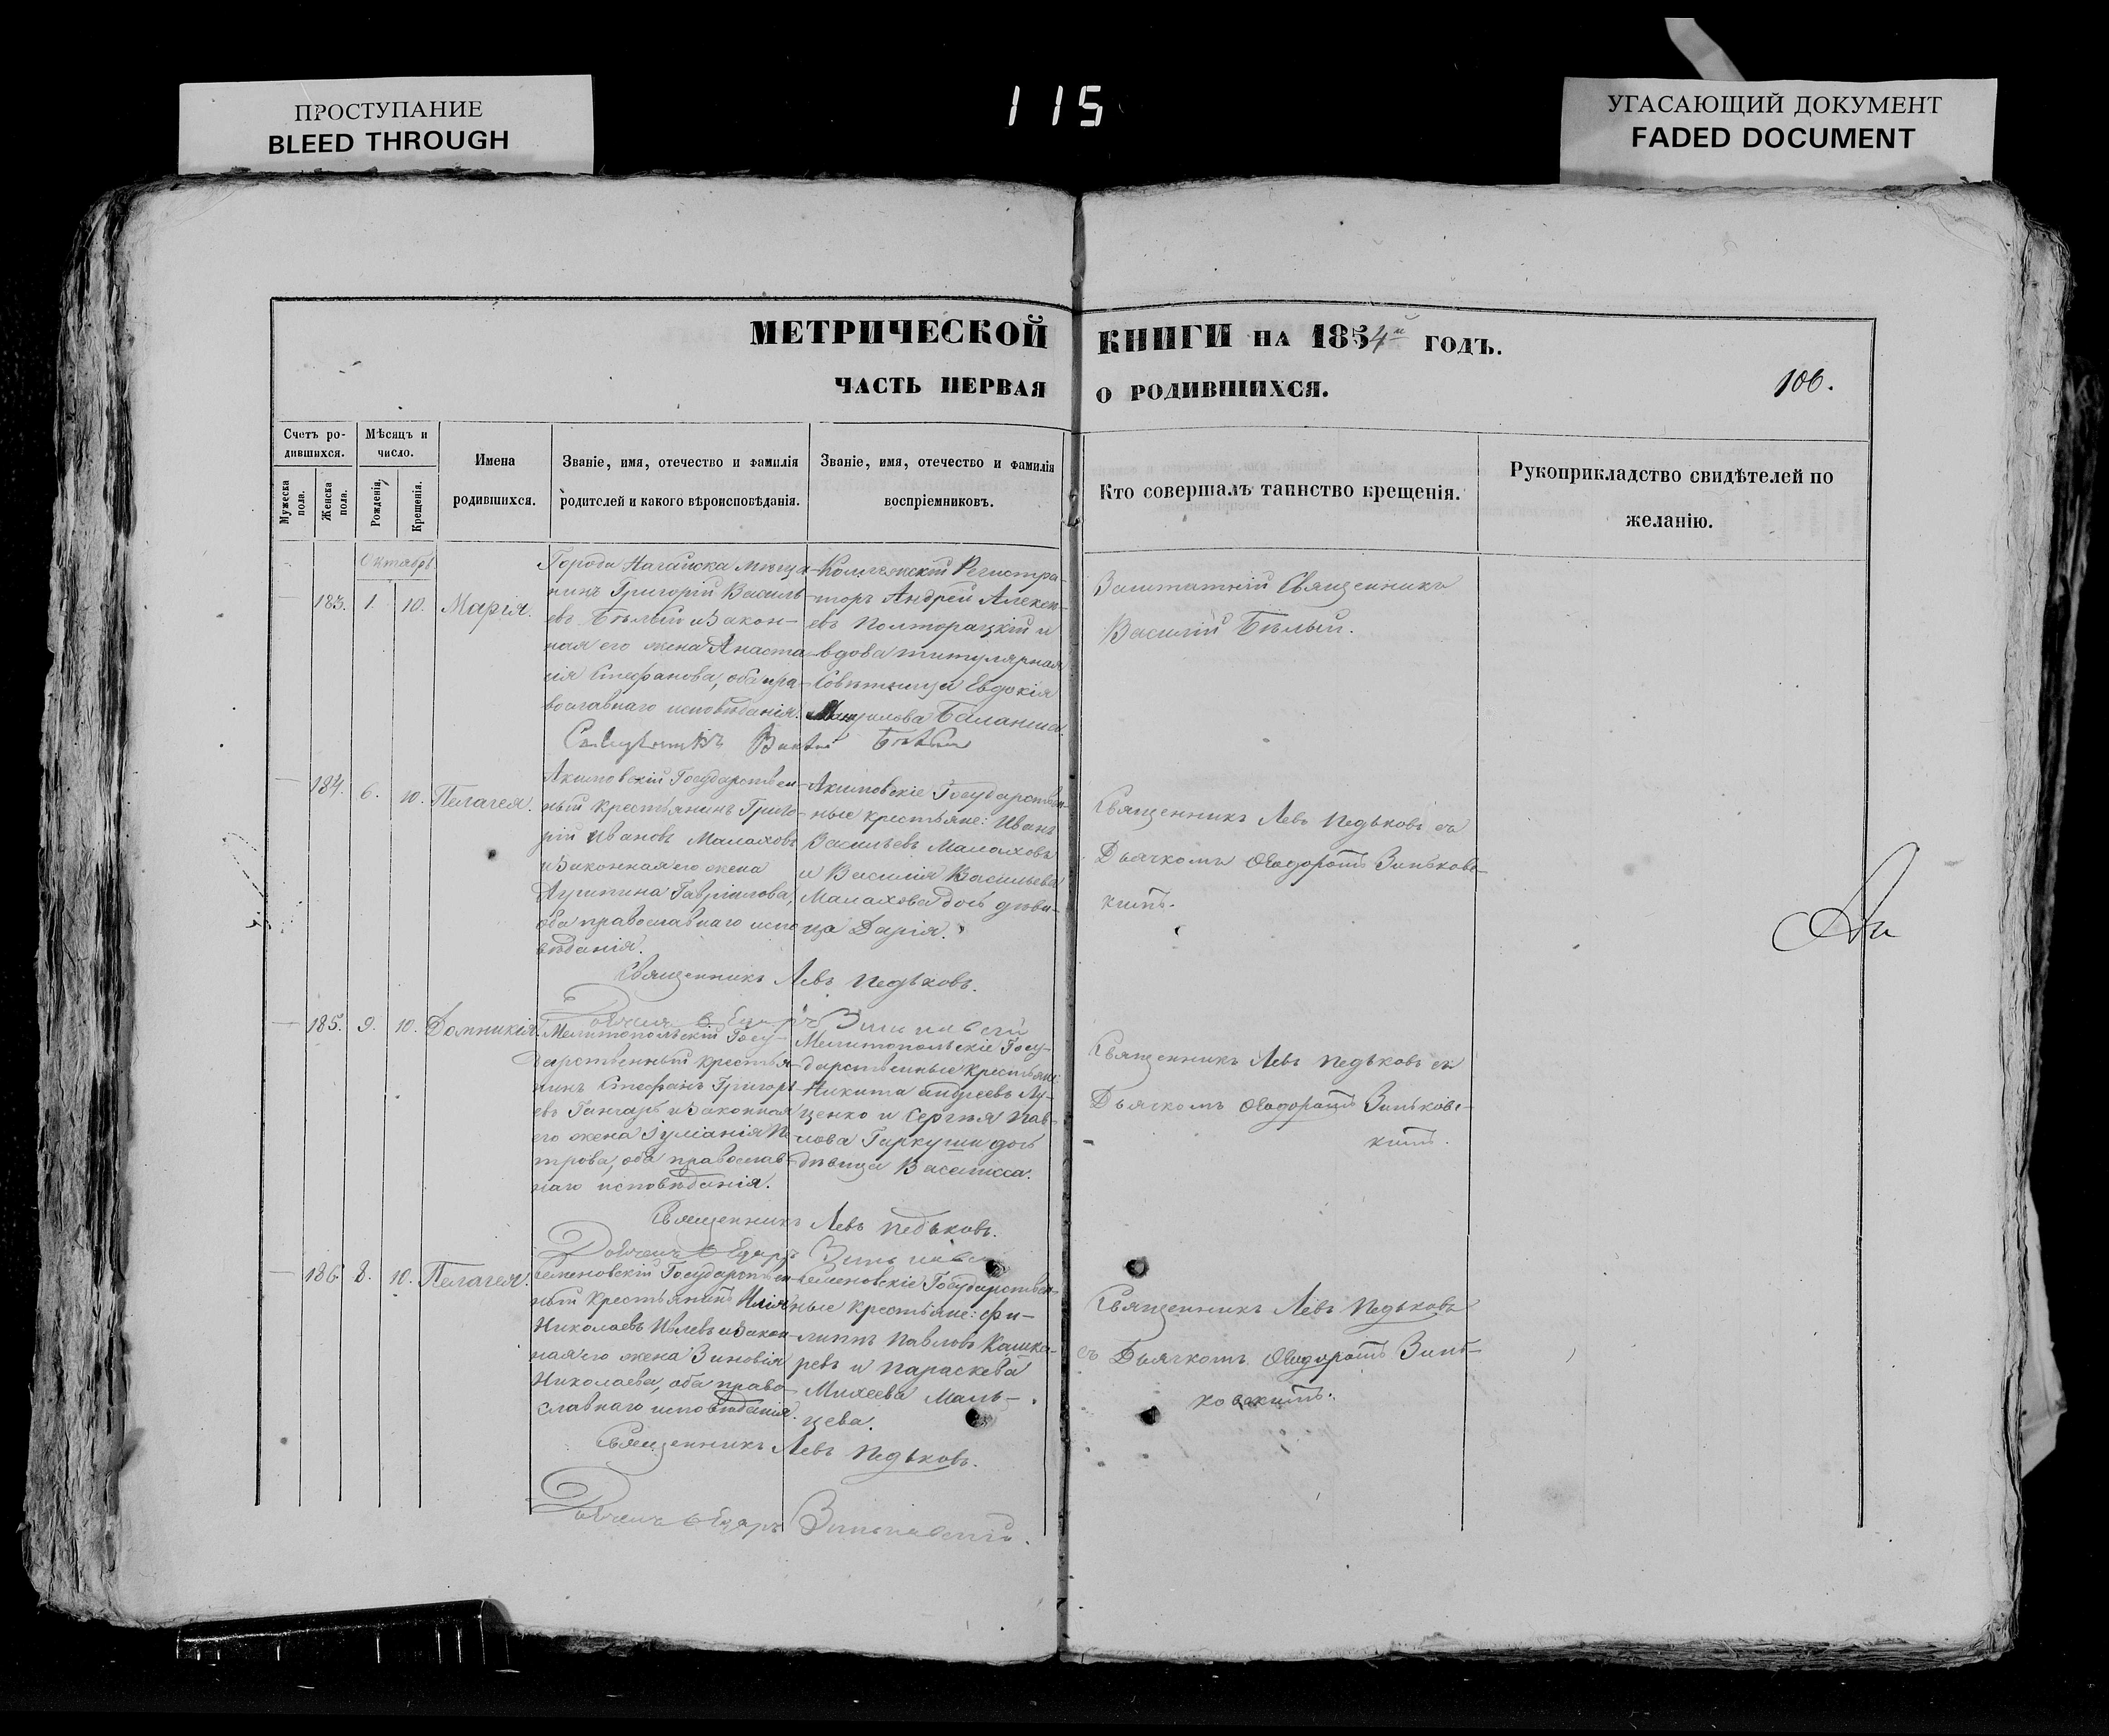 ПРОСТУПАНИЕ
BLEED THROUGH
115
УГАСАЮЩИЙ ДОКУМЕНТ
FADED DOCUMENT
МЕТРИЧЕСКОЙ КНИГИ НА 1854й ГОДЪ.
ЧАСТЬ ПЕРВАЯ О РОДИВШИХСЯ.
106.
Счетъ ро-
дившихся.
Мужеска пола.
Женска пола.
Мѣсяцъ и
число.
Рожденія.
Крещенія.
Имена
родившихся.
Званіе, имя, отечество и фамилія
родителей и какого вѣроисповѣданія.
Званіе, имя, отечество и фамилія
воспріемниковъ.
Кто совершалъ таинство крещенія.
Рукоприкладство свидѣтелей по
желанію.
Октябрь
183. 1. 10. Марія.
Города Нагайска мѣща-
нинъ Григорій Василь-
евъ Бѣлый и закон-
ная его жена Анаста-
сія Стефанова, оба пра-
вославнаго исповѣданія.
Коллежскій Регистра-
торъ Андрей Алексѣ-
евъ Полторацкій и
вдова титулярная
Совѣтница Евдокія
Заштатній Священникъ
Василій Бѣлый.
184. 6. 10. Пелагея.
Акимовскій Государствен-
ный крестьянинъ Григо-
рій Ивановъ Малаховъ
и законная его жена
Агрипина Гавріилова,
оба православнаго испо-
вѣданія.
Акимовскіе Государствен-
ные крестьяне: Иванъ
Васильевъ Малаховъ
и Василія Васильева
Малахова дочь дѣви-
ца Дарія.
Священникъ Левъ Педьковъ.
Священникъ Левъ Педьковъ съ
Дьячкомъ Ѳеодоромъ Зиньковс-
кимъ.
185. 9. 10. Домникія.
Мелитопольскій Госу-
дарственный крестья-
нинъ Стефанъ Григорь-
евъ Ганчаръ и законная
его жена Іуліанія Пе-
трова, оба православ-
наго исповѣданія.
Мелитопольскіе Госу-
дарственные крестьяне:
Никита Андреевъ Лу-
ценко и Сергѣя Пав-
лова Гаркуши дочь
дѣвица Василисса.
Священникъ Левъ Педьковъ.
Священникъ Левъ Педьковъ съ
Дьячкомъ Ѳеодоромъ Зиньковс-
кимъ.
186. 8. 10. Пелагея.
Семеновскій Государствен-
ный крестьянинъ Илія
Николаевъ Ивлевъ и закон-
ная его жена Зиновія
Николаева, оба право-
славнаго исповѣданія.
Семеновскіе Государствен-
ные крестьяне: Фи-
липпъ Павловъ Кашка-
ревъ и Параскева
Михеева Маль-
цева.
Священникъ Левъ Педьковъ.
Священникъ Левъ Педьковъ
съ Дьячкомъ Ѳеодоромъ Зинь-
ковскимъ.